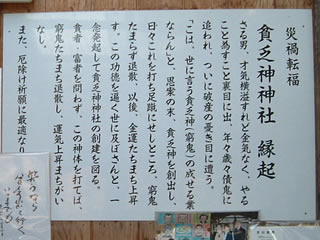 災禍転福
貧乏神神社 縁起
さる男、才気横溢すれど金気なく、やる
こと為すこと裏目に出、年々歳々債鬼に
追われ、ついに破産の憂き目に遭う。
「こは、世に言う貧乏神(窮鬼)の成せる業
ならん」と、思案の末、貧乏神を創出し、
日々これを打ち足蹴にせしところ、窮鬼
たまらず退散、以後、金運たちまち上昇
す。この功徳を遍く世に及ぼさんと、一
念発起して貧乏神神社の創建を図る。
貧者、富者を問わず、この神体を打てば、
窮鬼たちまち退散し、運気上昇まちがい
なし。
また、厄除け祈願に最適なり